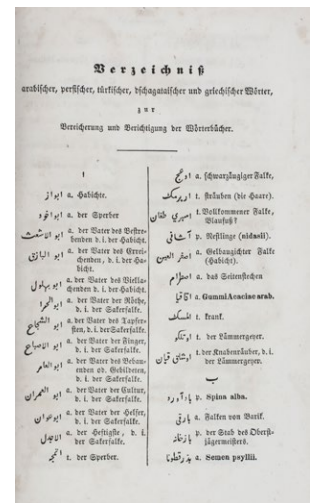 Verzeichniß
arabischer, persischer, türkischer, dschagataischer und griechischer Wörter,
zur
Bereicherung und Berichtigung der Wörterbücher.
ا
a. Habichte.
a. der Sperber
a. der Vater des
benden d. i. der Habicht.
ابو البازق a. der Vater des
chenden, d. i. der Ha-
bicht.
ابو بهلول a. der Vater des
chenden, d. i. der Habicht.
ابو الحمرا a. der Vater der Röthe,
d. i. der Sakerfalke.
ابو الشجاع a. der Vater des Tapfer-
sten, d. i. der Sakerfalke.
a. der Vater der Finger,
d. i. der Sakerfalke.
ابو العامر a. der Vater des Bebau-
enden od. Gebildeten,
d. i. der Sakerfalke.
ابو العمران a. der Vater der Cultur,
d. i. der Sakerfalke.
ابو عوان a. der Vater der Helfer,
d. i. der Sakerfalke.
الاجدل a. der Heftigste, d. i.
der Sakerfalke.
t. der Sperber.
a. schwarzäugiger Falke.
t. sträuben (die Haare).
t. Vollkommener Falke,
Blaufuß?
p. Nestlinge (nidasii).
اصفر العين a. Gelbaugichter Falke
(Habicht).
a. das Seitenstechen
اقاقيا a. Gummi Acaciae arab.
t. krank.
t. der Lämmergeyer.
t. der Knabenräuber, d. i.
der Lämmergeyer.
ب
p. Spina alba.
a. Falken von Barik.
p. der Stab des Oberst-
jägermeisters.
بذر قطونا a. Semen psyllii.